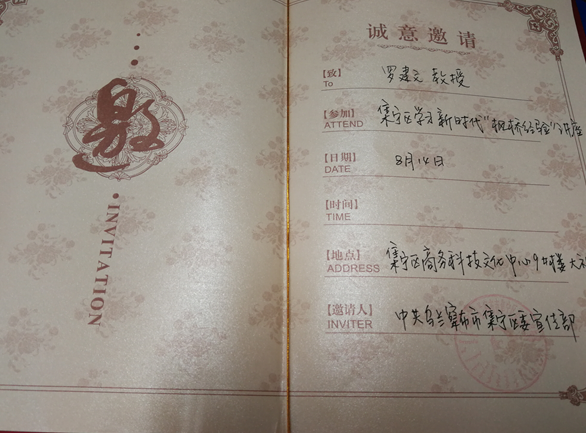 邀
INVITATION
诚意邀请
【致】 罗建文 教授
To
【参加】 集宁区学习新时代"枫桥经验"讲座
ATTEND
【日期】 8月14日
DATE
【时间】
TIME
【地点】 集宁区商务科技文化中心9号楼大
ADDRESS
【邀请人】 中共乌兰察布市集宁区委宣传部
INVITER